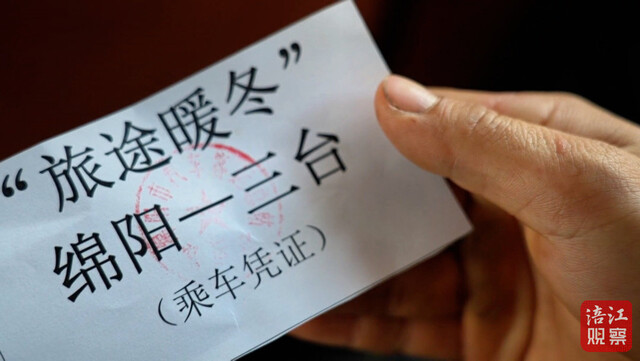 “旅途暖冬”
绵阳—三台
（乘车凭证）
涪江
观察